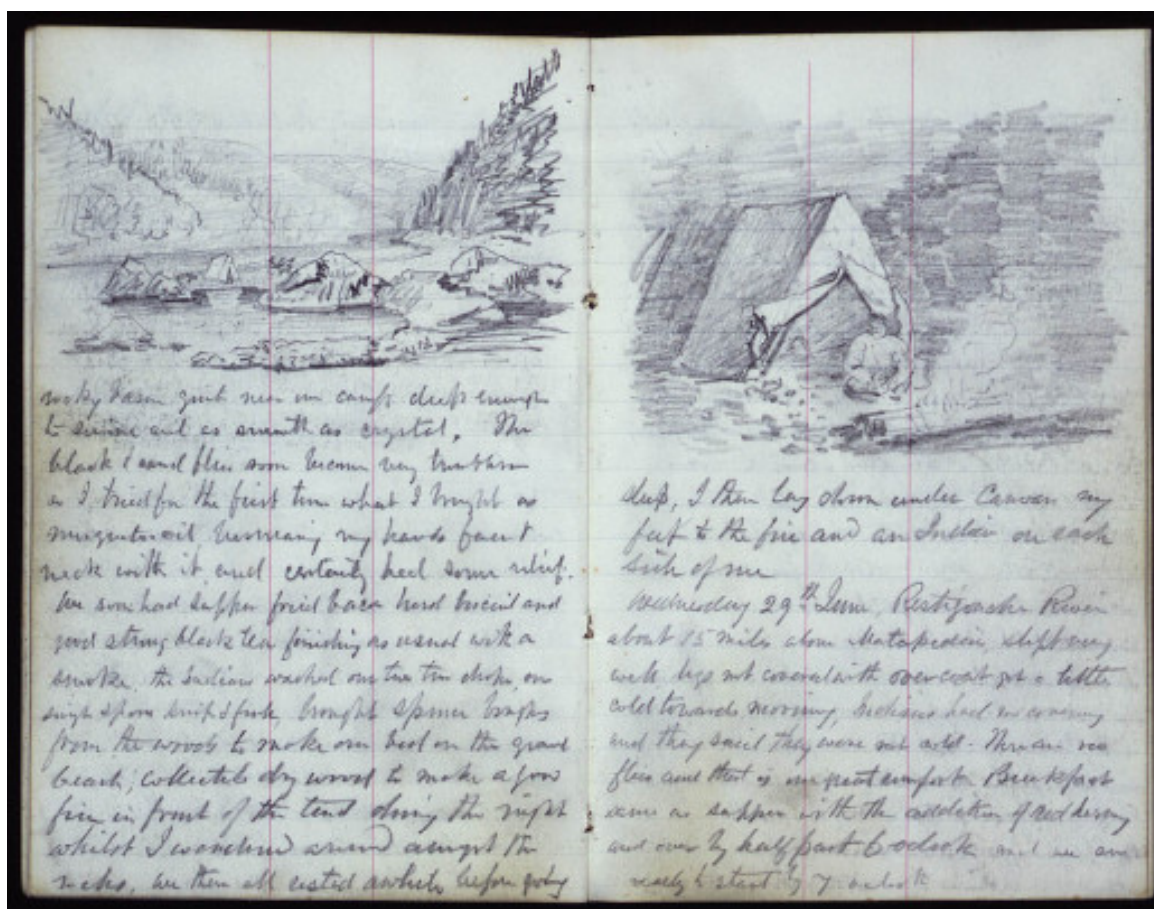 rocky basin quite near our camp deep enough
to swim and as smooth as crystal. The
black & sand flies soon became very troublesome
so I tried for the first time what I bought as
musquito oil besmearing my hands face &
neck with it and certainly had some relief.
We soon had supper fried bacon hard biscuit and
good strong black tea finishing as usual with a
smoke. the Indians washed our two tin dishes, our
single spoon knife & fork, brought spruce boughs
from the woods to make our bed on the gravel
beach, collected dry wood to make a good
fire in front of the tent during the night
whilst I wandered around amongst the
rocks, we then all rested awhile before going
sleep, I then lay down under Canvas my
feet to the fire and an Indian on each
side of me
Wednesday 29th June, Restigouche River
about 15 miles above Matapedia, slept very
well legs not covered with overcoat got a little
cold towards morning, Indians had no covering
and they said they were not cold. There are no
flies and that is one great comfort. Breakfast
same as supper with the addition of red herring
and over by half past 6 oclock and we are
ready to start by 7 oclock